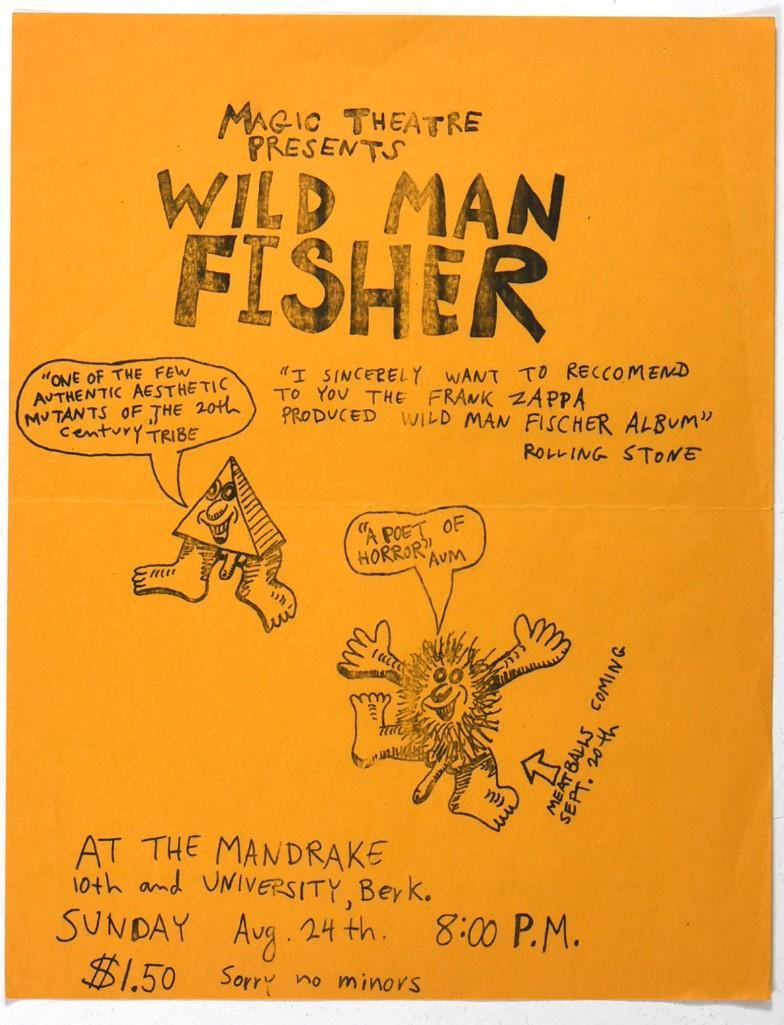 MAGIC THEATRE
PRESENTS
WILD MAN
FISHER
"ONE OF THE FEW
AUTHENTIC AESTHETIC
MUTANTS OF THE 20th
century", TRIBE
"I SINCERELY WANT TO RECCOMEND
TO YOU THE FRANK ZAPPA
PRODUCED WILD MAN FISCHER ALBUM"
ROLLING STONE
"A POET OF
HORROR", AUM
MEATBALLS COMING
SEPT. 20th
AT THE MANDRAKE
10th and UNIVERSITY, Berk.
SUNDAY Aug. 24th. 8:00 P.M.
$1.50 Sorry no minors